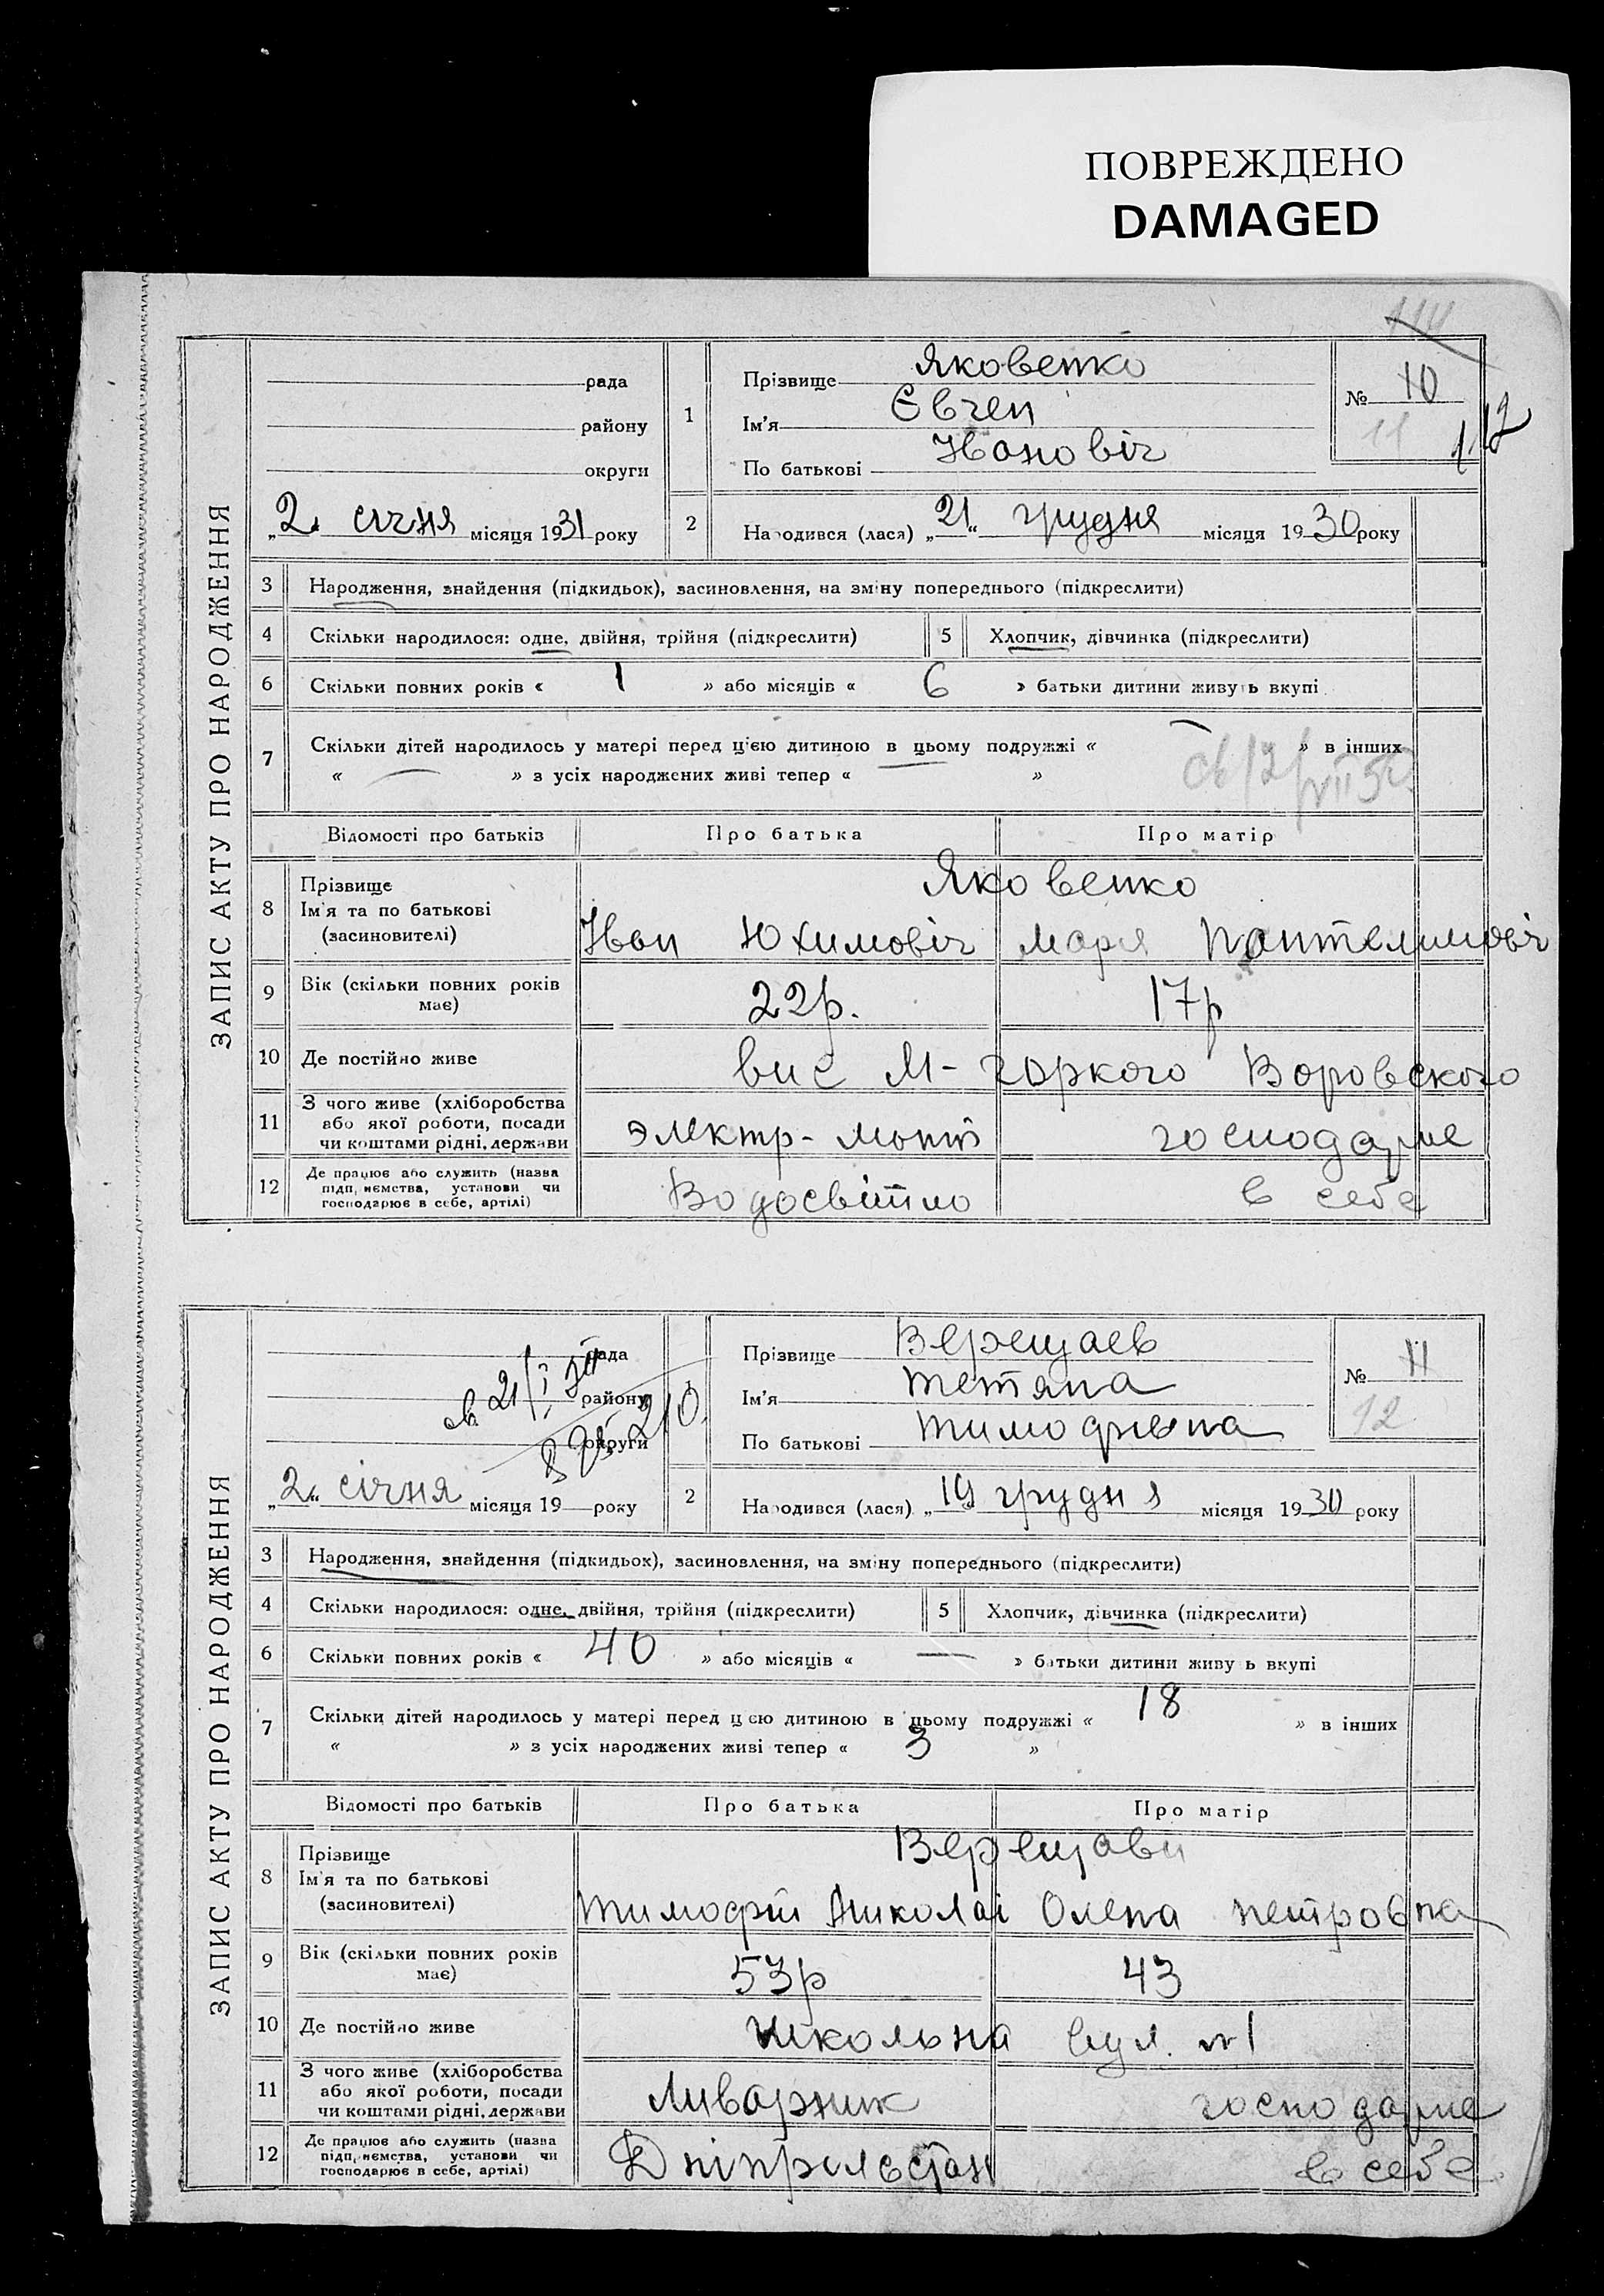 ПОВРЕЖДЕНО
DAMAGED
ЗАПИС АКТУ ПРО НАРОДЖЕННЯ
рада
району
округи
„2“ січня місяця 1931 року
1
Прізвище Яковенко
Ім'я Євген
По батькові Іванович
№ 10
11
2
Народився (лася) „21“ грудня місяця 1930 року
3 Народження, знайдення (підкидьок), засиновлення, на зміну попереднього (підкреслити)
4 Скільки народилося: одне, двійня, трійня (підкреслити)
5 Хлопчик, дівчинка (підкреслити)
6 Скільки повних років « 1 » або місяців « 6 » батьки дитини живуть вкупі
7 Скільки дітей народилось у матері перед цією дитиною в цьому подружжі « — » в інших
« — » з усіх народжених живі тепер « — »
Відомості про батьків Про батька Про матір
8 Прізвище Яковенко
Ім'я та по батькові
(засновителі) Іван Юхимовіч Марія Пантелимовіч
9 Вік (скільки повних років має) 22р. 17р
10 Де постійно живе вис М-горкого Воровского
11 З чого живе (хліборобства або якої роботи, посади чи коштами рідні, держави електр-монт господарює
12 Де працює або служить (назва підприємства, установи чи господарює в себе, артілі) Водосвітло в себе
ЗАПИС АКТУ ПРО НАРОДЖЕННЯ
рада
району
округи
„2“ січня місяця 19 року
Прізвище Верещаев
Ім'я Тетяна
По батькові Тимофівна
№ 11
12
2
Народився (лася) „19 грудня місяця 1930 року
3 Народження, знайдення (підкидьок), засиновлення, на зміну попереднього (підкреслити)
4 Скільки народилося: одне, двійня, трійня (підкреслити)
5 Хлопчик, дівчинка (підкреслити)
6 Скільки повних років « 40 » або місяців « — » батьки дитини живу ь вкупі
7 Скільки дітей народилось у матері перед цією дитиною в цьому подружжі « 18 » в інших
« » з усіх народжених живі тепер « 3 »
Відомості про батьків Про батька Про матір
8 Прізвище
Ім'я та по батькові
(засиновителі) Тимофій Николаі Олена Петровна
9 Вік (скільки повних років має) 53р 43
10 Де постійно живе Школьна вул. №1
11 З чого живе (хліборобства або якої роботи, посади чи коштами рідні, держави Ливарник господарює
12 Де працює або служить (назва підприємства, установи чи господарює в себе, артілі) в себе